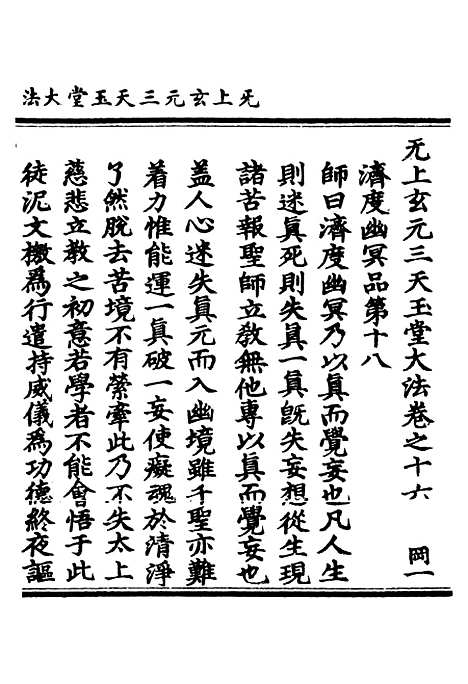 无上玄元三天玉堂大法
无上玄元三天玉堂大法卷之十六 岡一
濟度幽冥品第十八
師曰濟度幽冥乃以真而覺妄也凡人生
則迷真死則失真一真旣失妄想從生現
諸苦報聖師立教無他專以真而覺妄也
盖人心迷失真元而入幽境雖千聖亦難
着力惟能運一真破一妄使癡魂於清淨
了然脫去苦境不有縈牽此乃不失太上
慈悲立教之初意若學者不能會悟于此
徒泥文檄為行遣持威儀為功德終夜謳